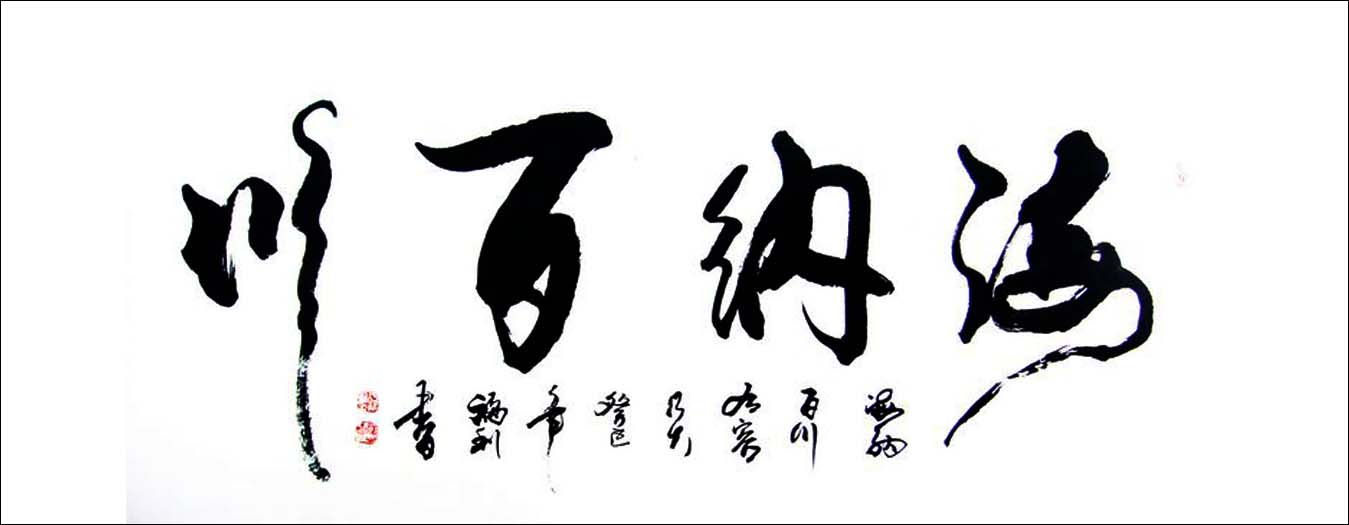 海纳百川
海纳
百川
有容
乃大
癸巳
年
福利
書